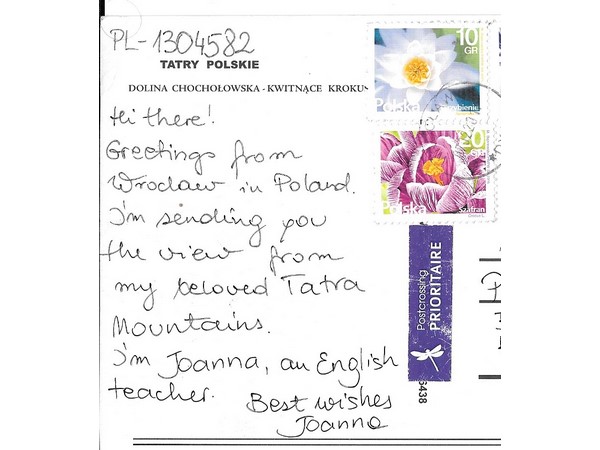 PL-1304582
TATRY POLSKIE
DOLINA CHOCHOŁOWSKA - KWITNĄCE KROKUS
Hi there!
Greetings from
Wrocław in Poland.
I'm sending you
the view from
my beloved Tatra
Mountains.
I'm Joanna, an English
teacher.
Best wishes
Joanna
10
GR
Polska
20
GR
Polska
Szafran
Postcrossing
PRIORITAIRE
6438